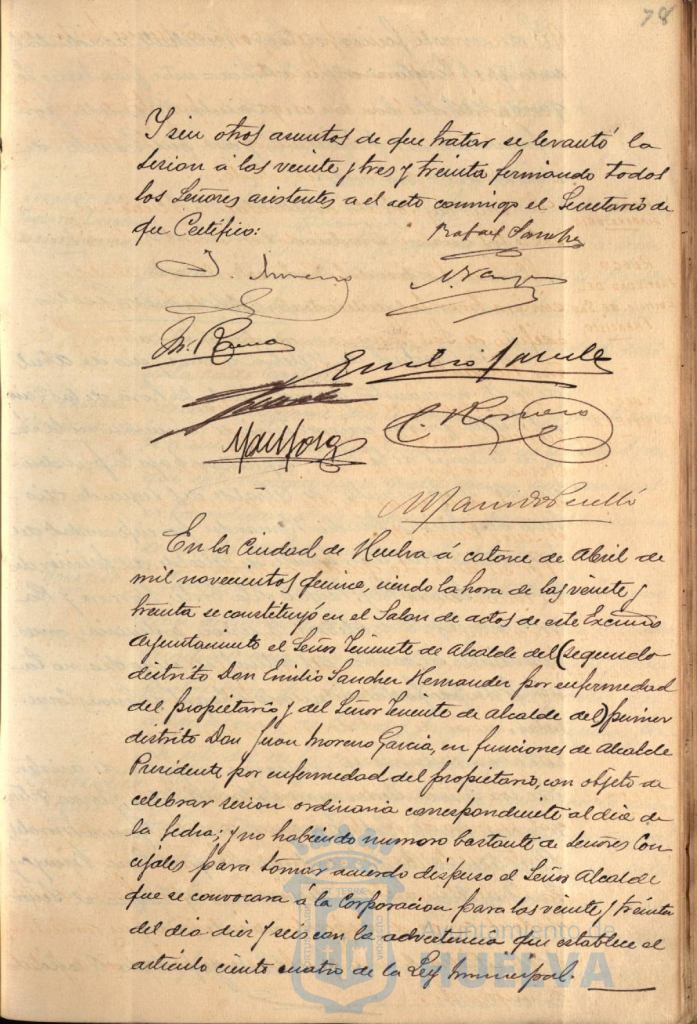 78
Y sin otros asuntos de que tratar se levantó la
sesion á las veinte y tres y treinta firmando todos
los Señores asistentes a el acto conmigo el Secretario de
que Certifico:
Rafael Sanchez
J. Moreno
Emilio
C. Romero
En la Ciudad de Huelva á catorce de Abril de
mil novecientos quince, siendo la hora de las veinte y
treinta se constituyó en el Salon de actos de este Excmo
Ayuntamiento el Señor Teniente de Alcalde del (segundo
distrito Don Emilio Sanchez Hernandez por enfermedad
del propietario y del Señor Teniente de Alcalde del) primer
distrito Don Juan Moreno Garcia, en funciones de Alcalde
Presidente por enfermedad del propietario, con objeto de
celebrar sesion ordinaria correspondiente al dia de
la fecha; y no habiendo numero bastante de Señores Con-
cejales para tomar acuerdo dispuso el Señor Alcalde
que se convocara á la Corporacion para las veinte y treinta
del dia diez y seis con la advertencia que establece el
articulo ciento cuatro de la Ley Municipal.
Ayuntamiento de
HUELVA